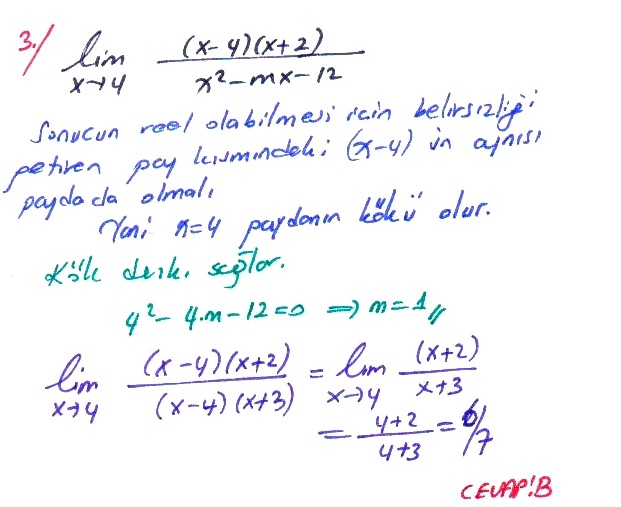 3./ lim x→4 (x-4)(x+2) / x²-mx-12
Sonucun reel olabilmesi için belirsizliği
getiren pay kısmındaki (x-4) ün aynısı
paydada olmalı
Yani x=4 paydanın kökü olur.
Kök denk. sağlar.
4²-4.m-12=0 ⇒ m=1//
lim x→4 (x-4)(x+2) / (x-4)(x+3) = lim x→4 (x+2) / x+3
= 4+2 / 4+3 = 6/7
CEVAP:B